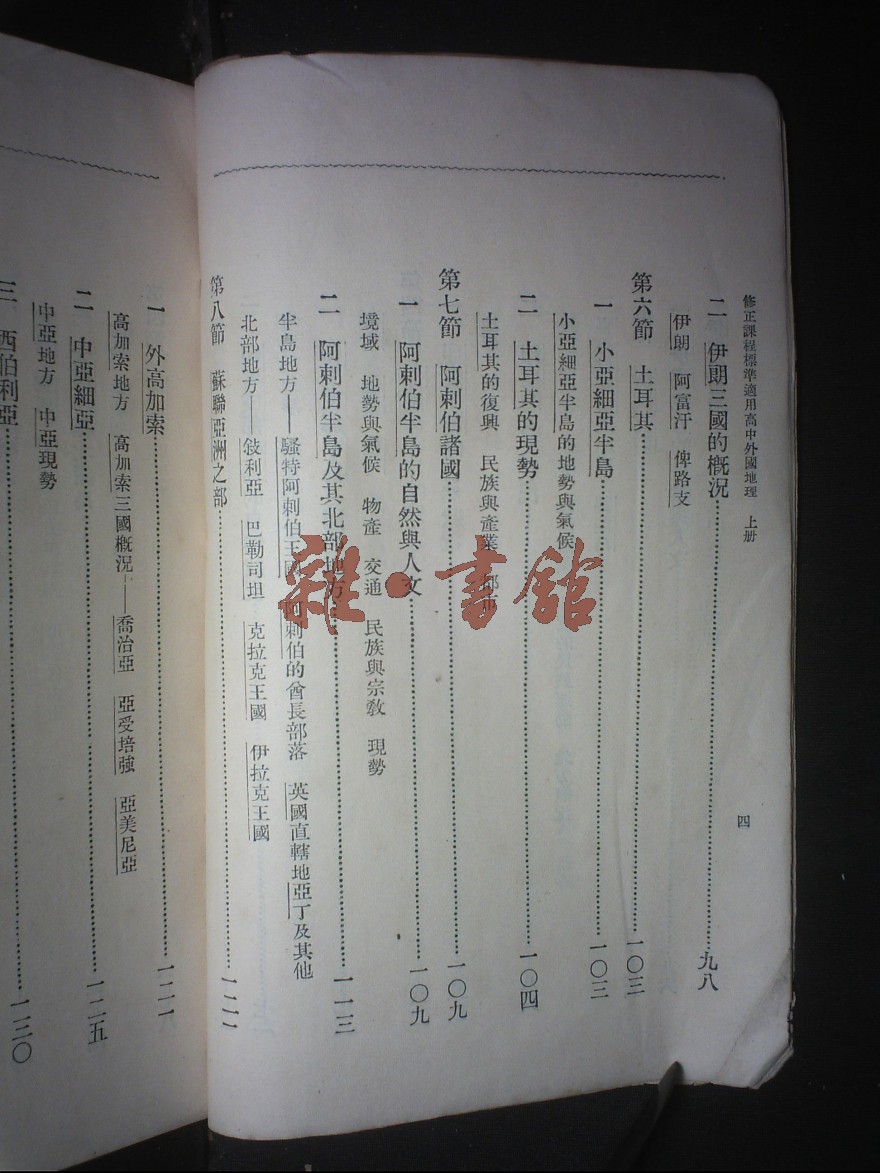 修正課程標準適用高中外國地理　上册
四
二　伊朗三國的概況……九八
伊朗　阿富汗　俾路支
第六節　土耳其……一〇三
一　小亞細亞半島……一〇三
小亞細亞半島的地勢與氣候
二　土耳其的現勢……一〇四
土耳其的復興　民族與產業　都市
第七節　阿剌伯諸國……一〇九
一　阿剌伯半島的自然與人文……一〇九
境域　地勢與氣候　物產　交通　民族與宗教　現勢
二　阿剌伯半島及其北部地方……一一三
半島地方——騷特阿剌伯王國　阿剌伯的酋長部落　英國直轄地亞丁及其他
北部地方——敍利亞　巴勒司坦　克拉克王國　伊拉克王國
第八節　蘇聯亞洲之部……一二一
一　外高加索……一二一
高加索地方　高加索三國概況——喬治亞　亞受培強　亞美尼亞
二　中亞細亞……一二五
中亞地方　中亞現勢
三　西伯利亞……一三〇
雜·書館